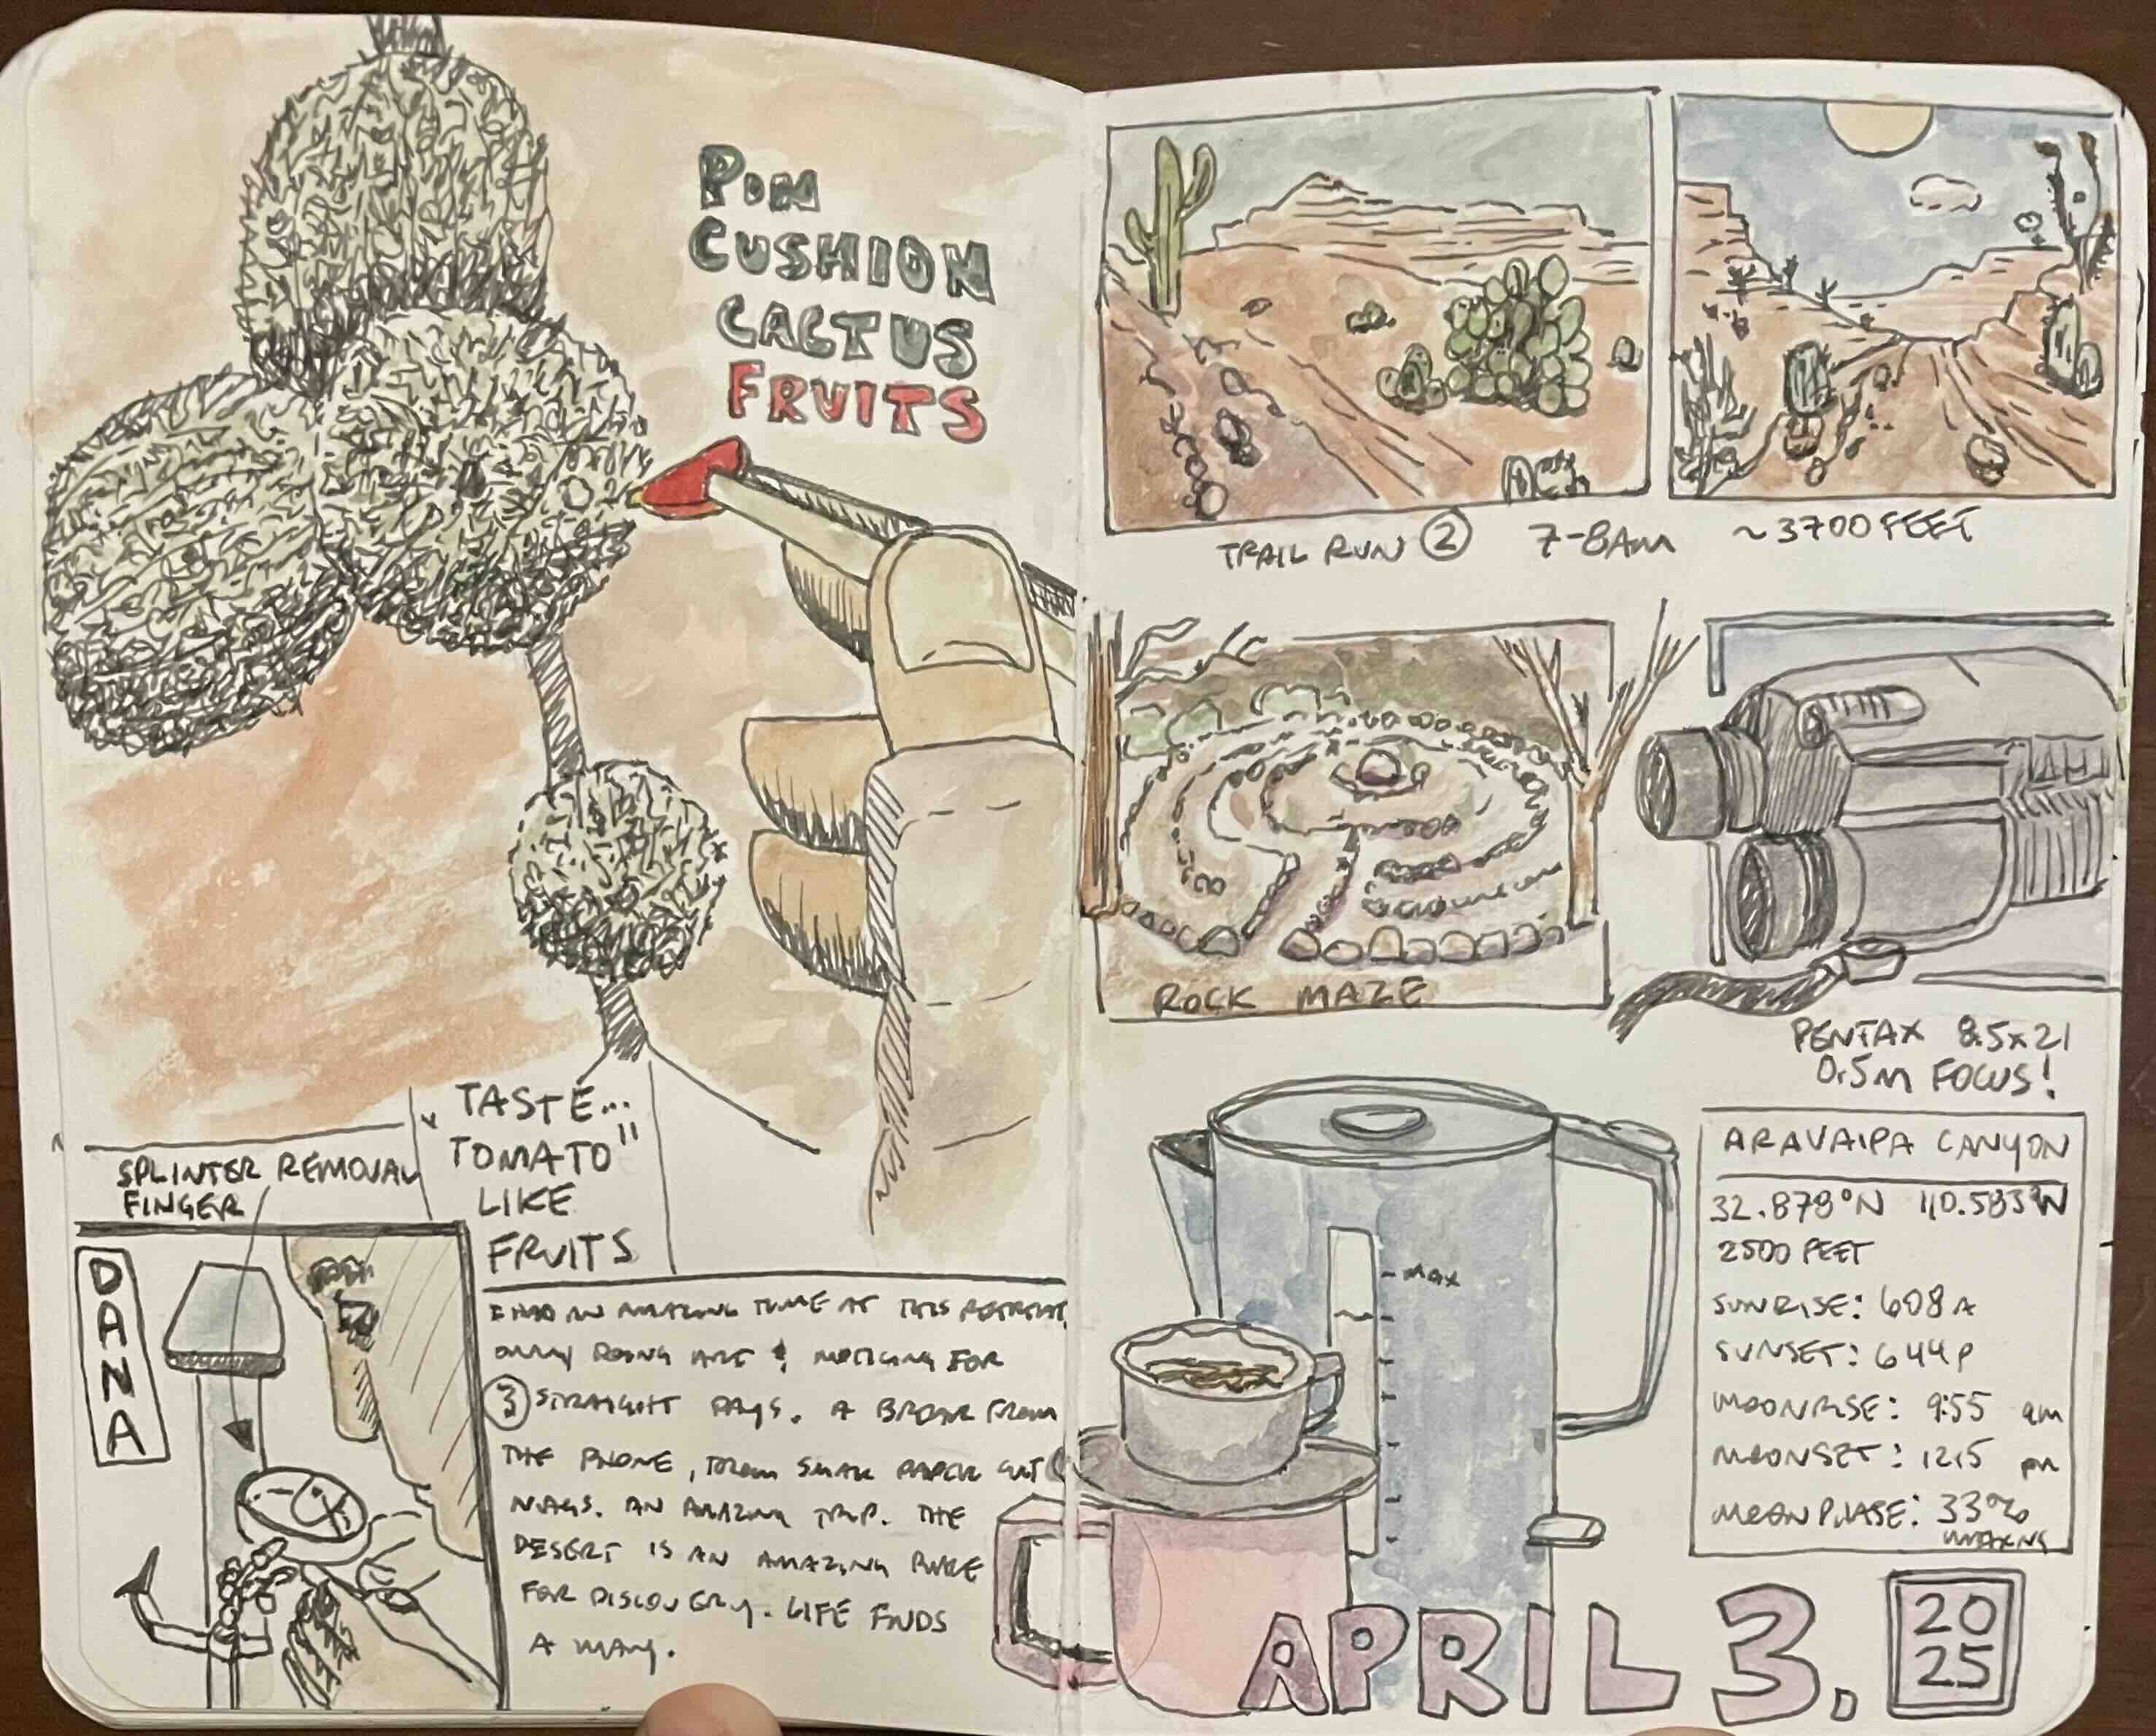 PIN
CUSHION
CACTUS
FRUITS
"TASTE...
TOMATO"
LIKE
FRUITS
SPLINTER REMOVAL
FINGER
DANA
I HAD AN AMAZING TIME AT THIS RETREAT,
ONLY DOING ART & NOTICING FOR
3 STRAIGHT DAYS. A BREAK FROM
THE PHONE, FROM SMALL PAPER CUT
NAGS. AN AMAZING TRIP. THE
DESERT IS AN AMAZING PLACE
FOR DISCOVERY. LIFE FINDS
A WAY.
TRAIL RUN 2 7-8AM ~3700 FEET
ROCK MAZE
PENTAX 8.5x21
0.5M FOCUS!
MAX
ARAVAIPA CANYON
32.878°N 110.583°W
2500 FEET
SUNRISE: 608 A
SUNSET: 644 P
MOONRISE: 9:55 am
MOONSET: 1215 pm
MOON PHASE: 33%
WAXING
APRIL 3,
20
25